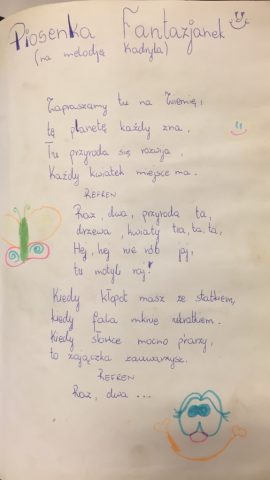 Piosenka Fantazjanek
(na melodję Kadryla)
Zapraszamy tu na Zwienię,
tę planetę każdy zna.
Tu przyroda się rozwija,
Każdy kwiatek miejsce ma.
REFREN
Raz, dwa, przyroda ta,
drzewa, kwiaty tra, ta, ta,
Hej, hej nie rób jej,
tu motyli raj!
Kiedy kłopot masz ze statkiem,
kiedy fala mknie ukradkiem.
Kiedy słońce mocno praży,
to zajączka zauważysz.
REFREN
Raz, dwa ...